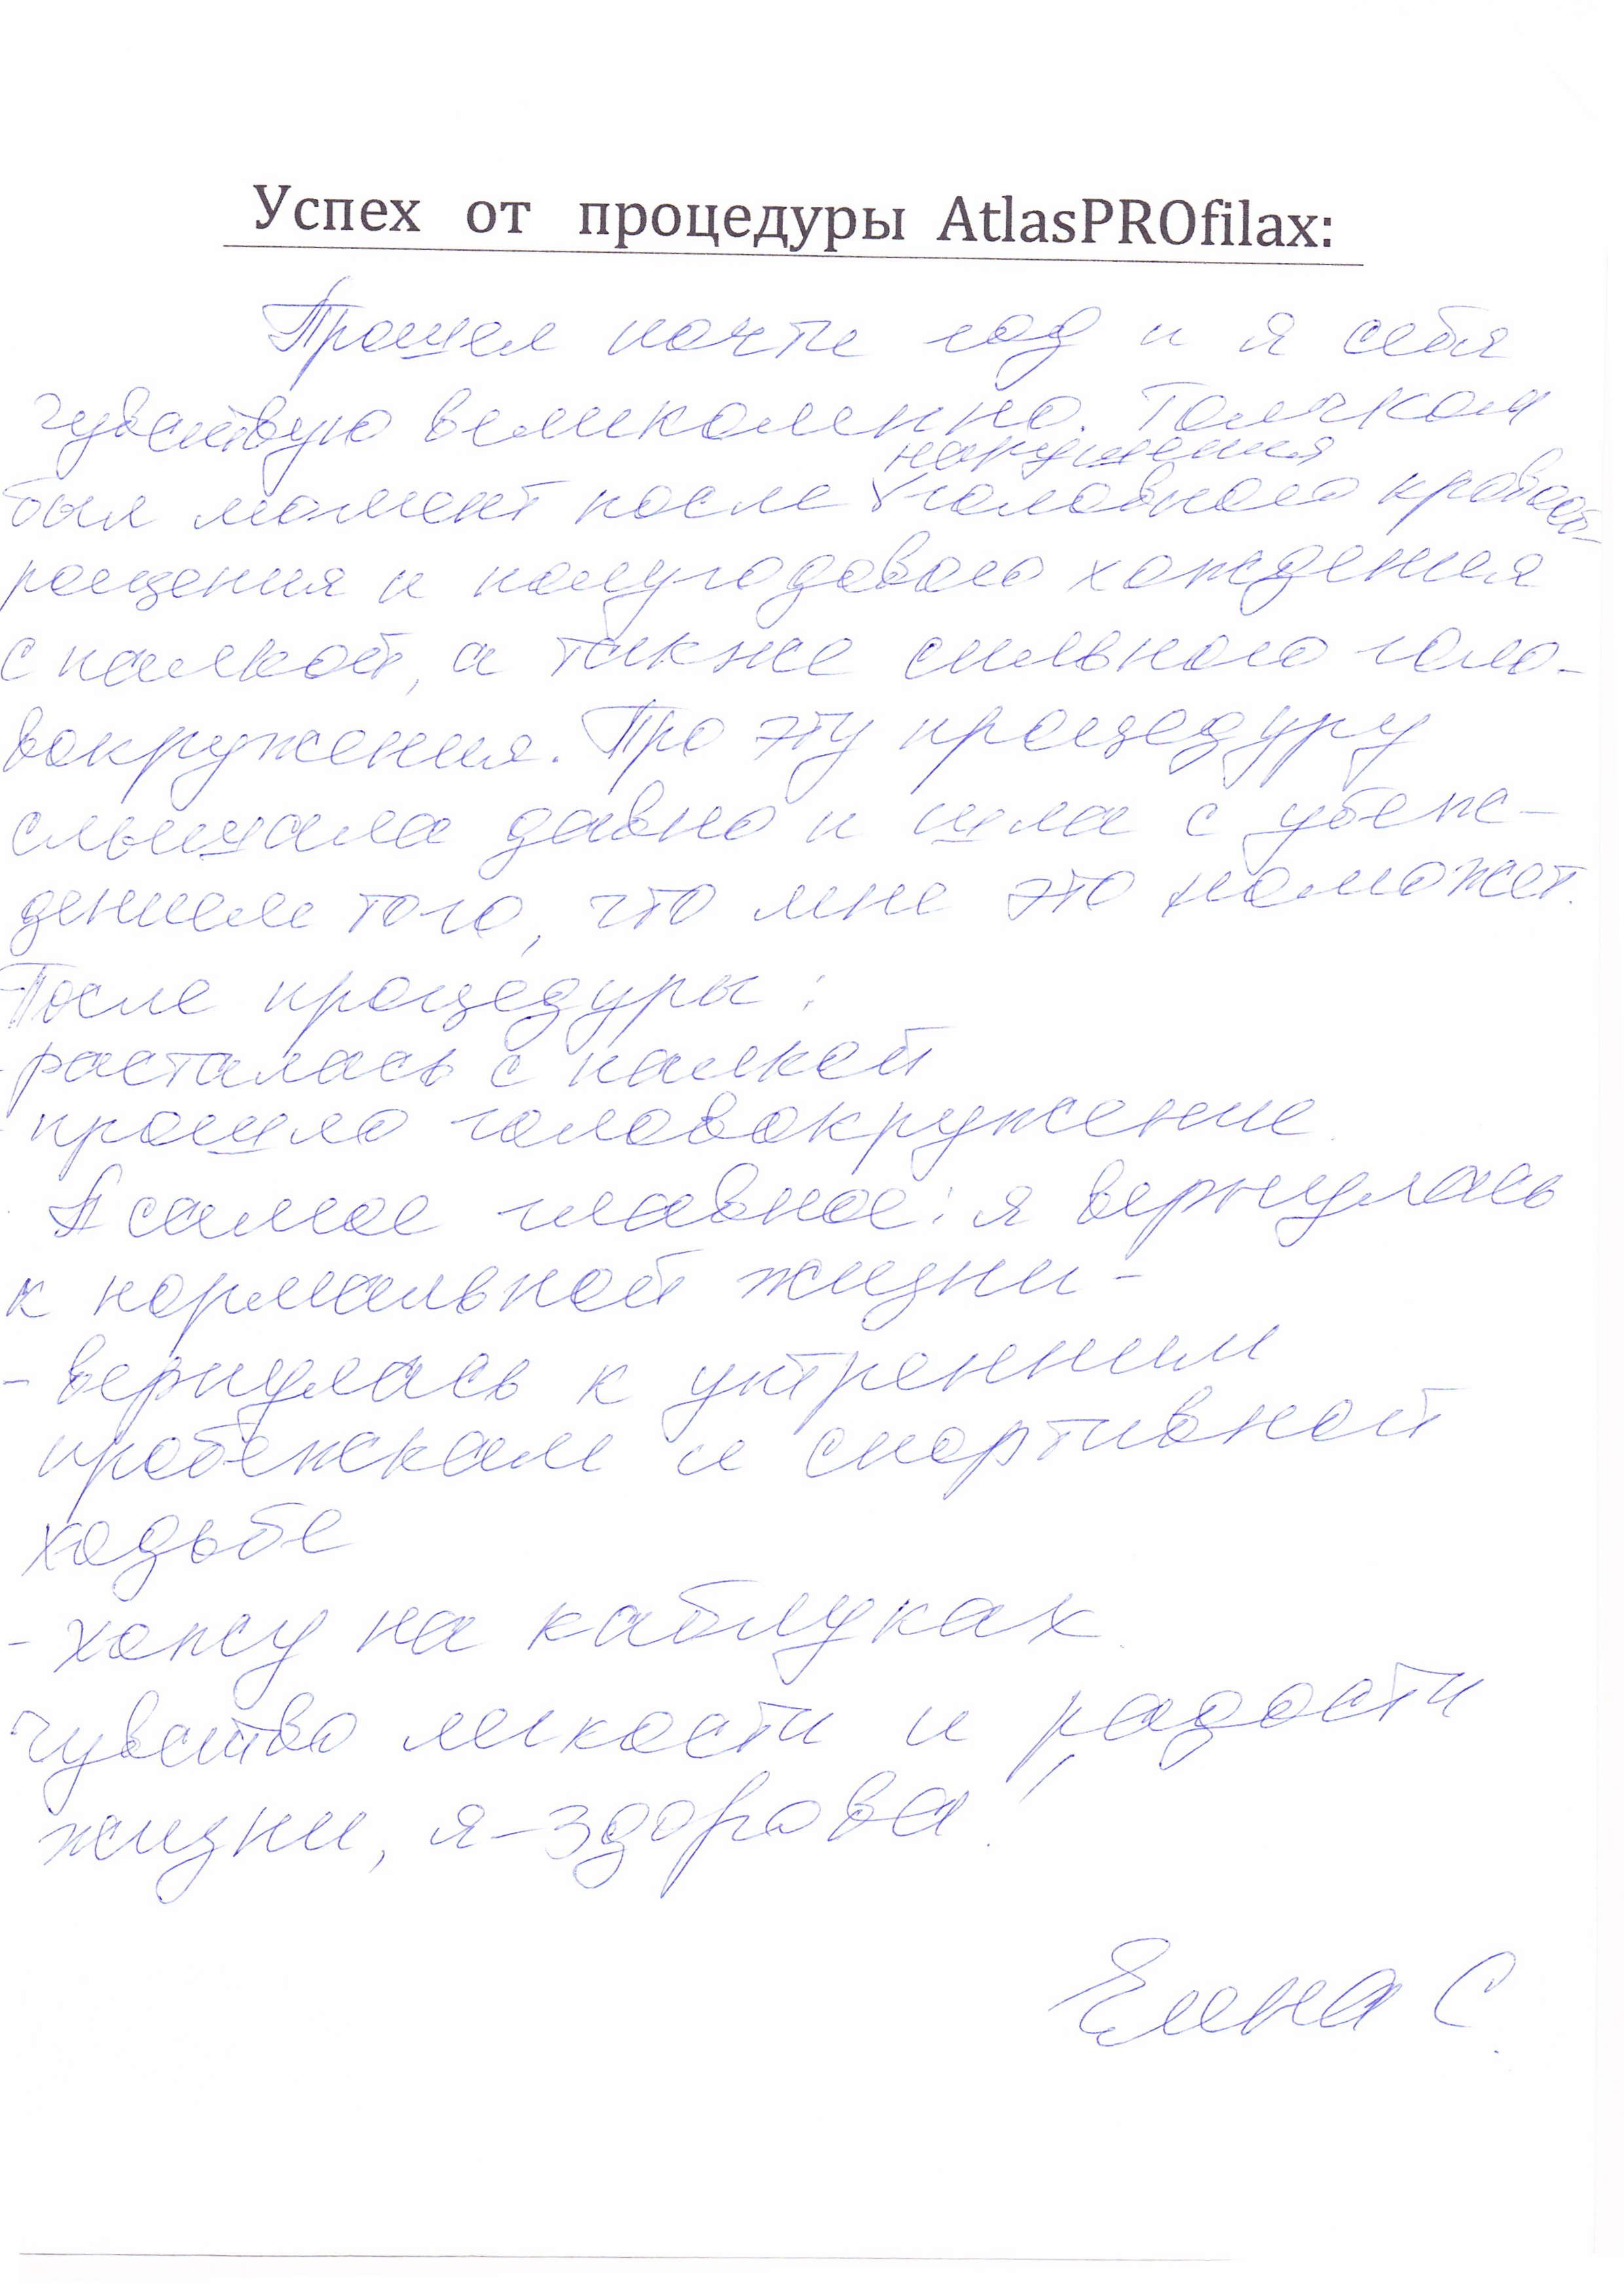 Успех от процедуры AtlasPROfilax:
Прошел почти год и я себя
чувствую великоленно. Толчком
нарушения
был момент после головного кровооб-
ращения и полугодового хождения
с палкой, а также сильного голо-
вокружения. Про эту процедуру
слышала давно и шла с убеж-
дением того, что мне это поможет.
После процедуры:
- расталась с палкой
- прошло головокружение.
- А самое главное: я вернулась
к нормальной жизни -
- вернулась к утренним
пробежкам и спортивной
ходьбе
- хожу на каблуках.
Чувство легкости и радости
жизни, я - здорова!
Елена С.